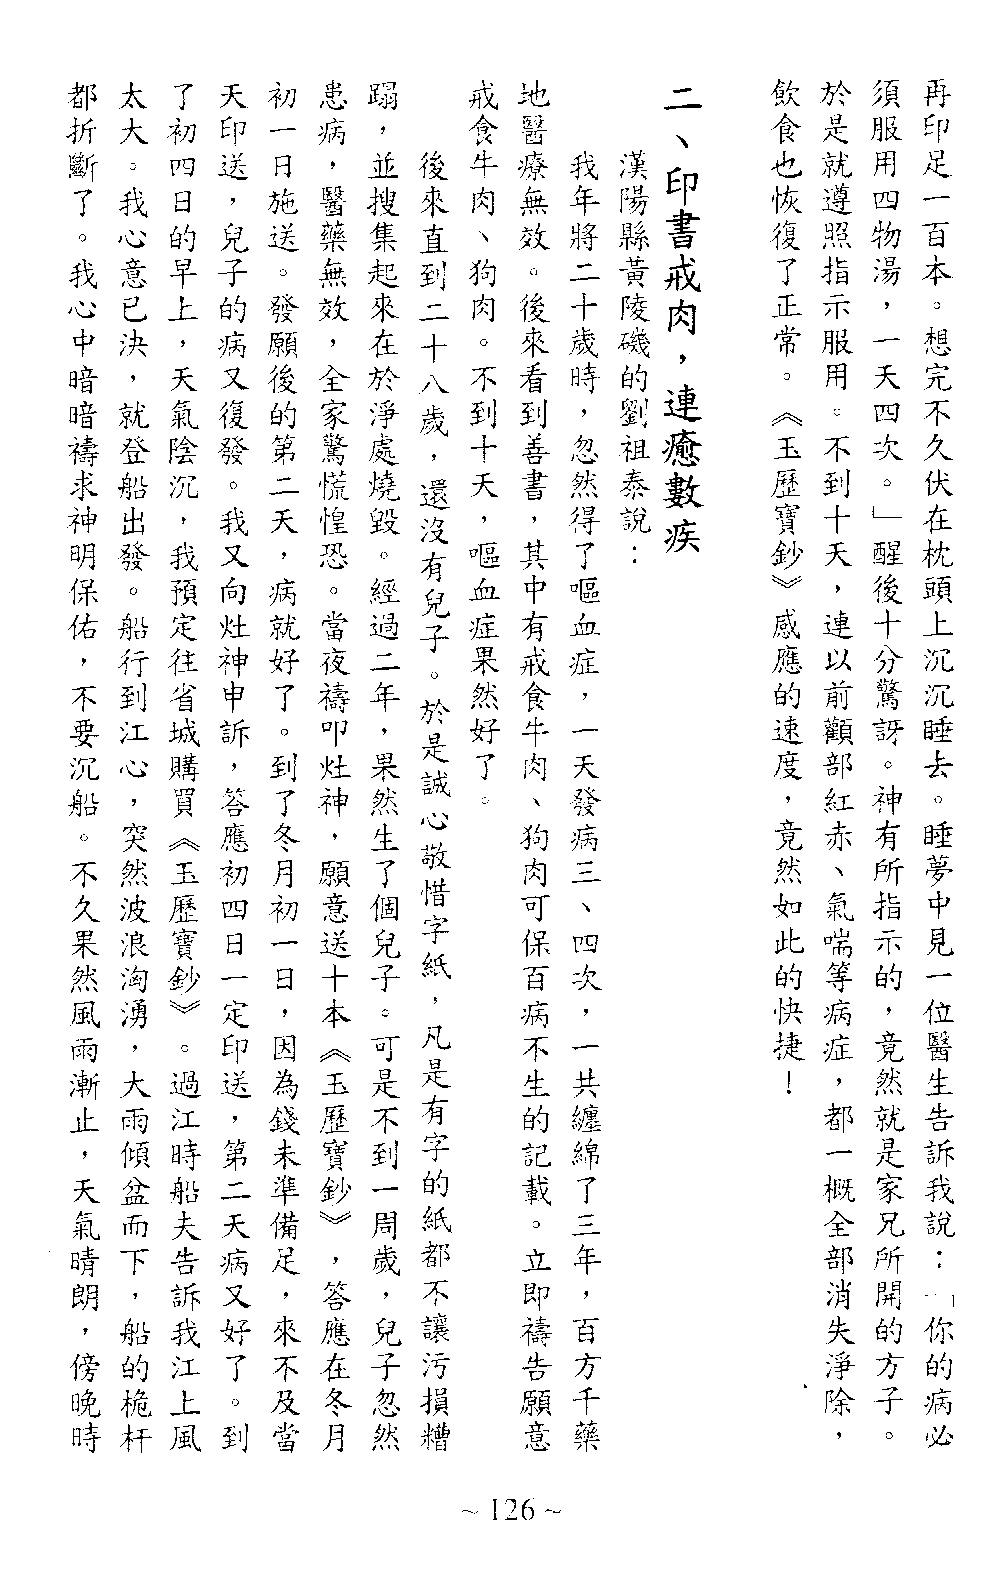 再印足一百本。想完不久伏在枕頭上沉沉睡去。睡夢中見一位醫生告訴我說：「你的病必
須服用四物湯，一天四次。」醒後十分驚訝。神有所指示的，竟然就是家兄所開的方子。
於是就遵照指示服用。不到十天，連以前顴部紅赤、氣喘等病症，都一概全部消失淨除，
飲食也恢復了正常。《玉歷寶鈔》感應的速度，竟然如此的快捷！
二、印書戒肉，連癒數疾
漢陽縣黃陵磯的劉祖泰說：
我年將二十歲時，忽然得了嘔血症，一天發病三、四次，一共纏綿了三年，百方千藥
地醫療無效。後來看到善書，其中有戒食牛肉、狗肉可保百病不生的記載。立即禱告願意
戒食牛肉、狗肉。不到十天，嘔血症果然好了。
後來直到二十八歲，還沒有兒子。於是誠心敬惜字紙，凡是有字的紙都不讓污損糟
蹋，並搜集起來在於淨處燒毀。經過二年，果然生了個兒子。可是不到一周歲，兒子忽然
患病，醫藥無效，全家驚慌惶恐。當夜禱叩灶神，願意送十本《玉歷寶鈔》，答應在冬月
初一日施送。發願後的第二天，病就好了。到了冬月初一日，因為錢未準備足，來不及當
天印送，兒子的病又復發。我又向灶神申訴，答應初四日一定印送，第二天病又好了。到
了初四日的早上，天氣陰沉，我預定往省城購買《玉歷寶鈔》。過江時船夫告訴我江上風
太大。我心意已決，就登船出發。船行到江心，突然波浪洶湧，大雨傾盆而下，船的桅杆
都折斷了。我心中暗暗禱求神明保佑，不要沉船。不久果然風雨漸止，天氣晴朗，傍晚時
~ 126 ~